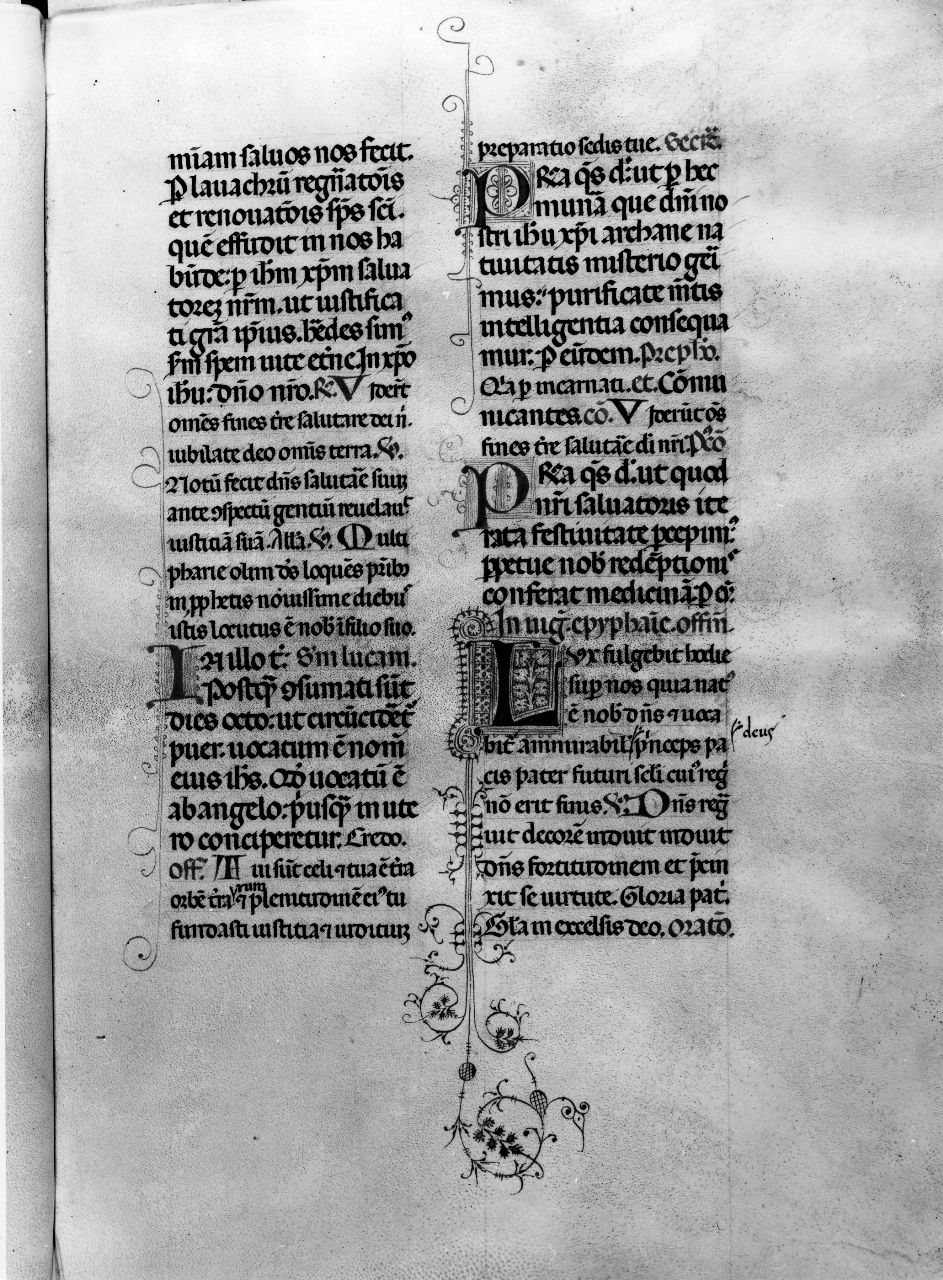 mīam saluos nos fecit.
P̱ lauachrū regn̄atōis
et renouatōis sp̄s sc̄i.
quē effudit in nos ha
būde: ꝑ ih̄m xp̄m salua
torez nr̄m. ut iustifica
ti grā ip̄ius. hēdes simꝰ
sm̄ spem uite et̄ne. In xp̄o
ih̄u: dn̄o nr̄o. R̵. Vider̄t
omēs fines t̄re salutare dei n̄i.
iubilate deo omīs terra. V̵.
Notū fecit dn̄s salutāe suuꝫ
ante ꝯspectū gentiū reuelauꝰ
iustitiā suā. All̄a. V̵. Multi
pharie olim ds̄ loquēs pr̄ibꝫ
in ꝓphetis nouissime diebuꝰ
istis locutus ē nob̄ i filio suo.
In illo t̄: Sm̄ lucam.
Postqꝫ ꝯsumati sūt
dies octo: ut circūcidēt̄
puer. uocatum ē nom̄
eius ih̄s. Qd̄ uocatū ē
ab angelo: p̄usqꝫ in ute
ro conciperetur. Credo.
off. Tui sūt celi ⁊ tua ē t̄ra
orbē t̄raꝝ rum ⁊ plenitudinē eiꝰ tu
fundasti iustitia ⁊ iudiciuꝫ
preparatio sedis tue. Secr̄.
PRa qs̄ d̄: ut ꝑ hec
munā que dn̄i no
stri ih̄u xp̄i archane na
tiuitatis misterio geī
mus: purificate m̄tis
intelligentia consequa
mur: P̱ eūdem. Prephō.
Qīa ꝑ incarnati. et. Cōmu
nicantes. cō. Viderūt ōs
fines t̄re salutāe di nr̄i. Pcō
PRa qs̄ d̄: ut quod
nr̄i saluatoris ite
rata festiuitate ꝑcepimꝰ:
ꝑpetue nob̄ redēptionꝰ
conferat medicinā. P̱ eū:
In uiḡ. epyphaīe. offm̄.
Lux fulgebit hodie
suꝑ nos quia natꝰ
ē nob̄ dn̄s ⁊ uoca
bit̄ ammirabil̄ p̄nceps pa
deus
cis pater futuri scl̄i cuiꝰ reḡ
nō erit finis V̵. Dn̄s reḡ
uit decorē induit induit
dn̄s fortitudinem et p̄cin
xit se uirtute. Gloria pat̄.
Gl̄a in excelsis deo. oratō.